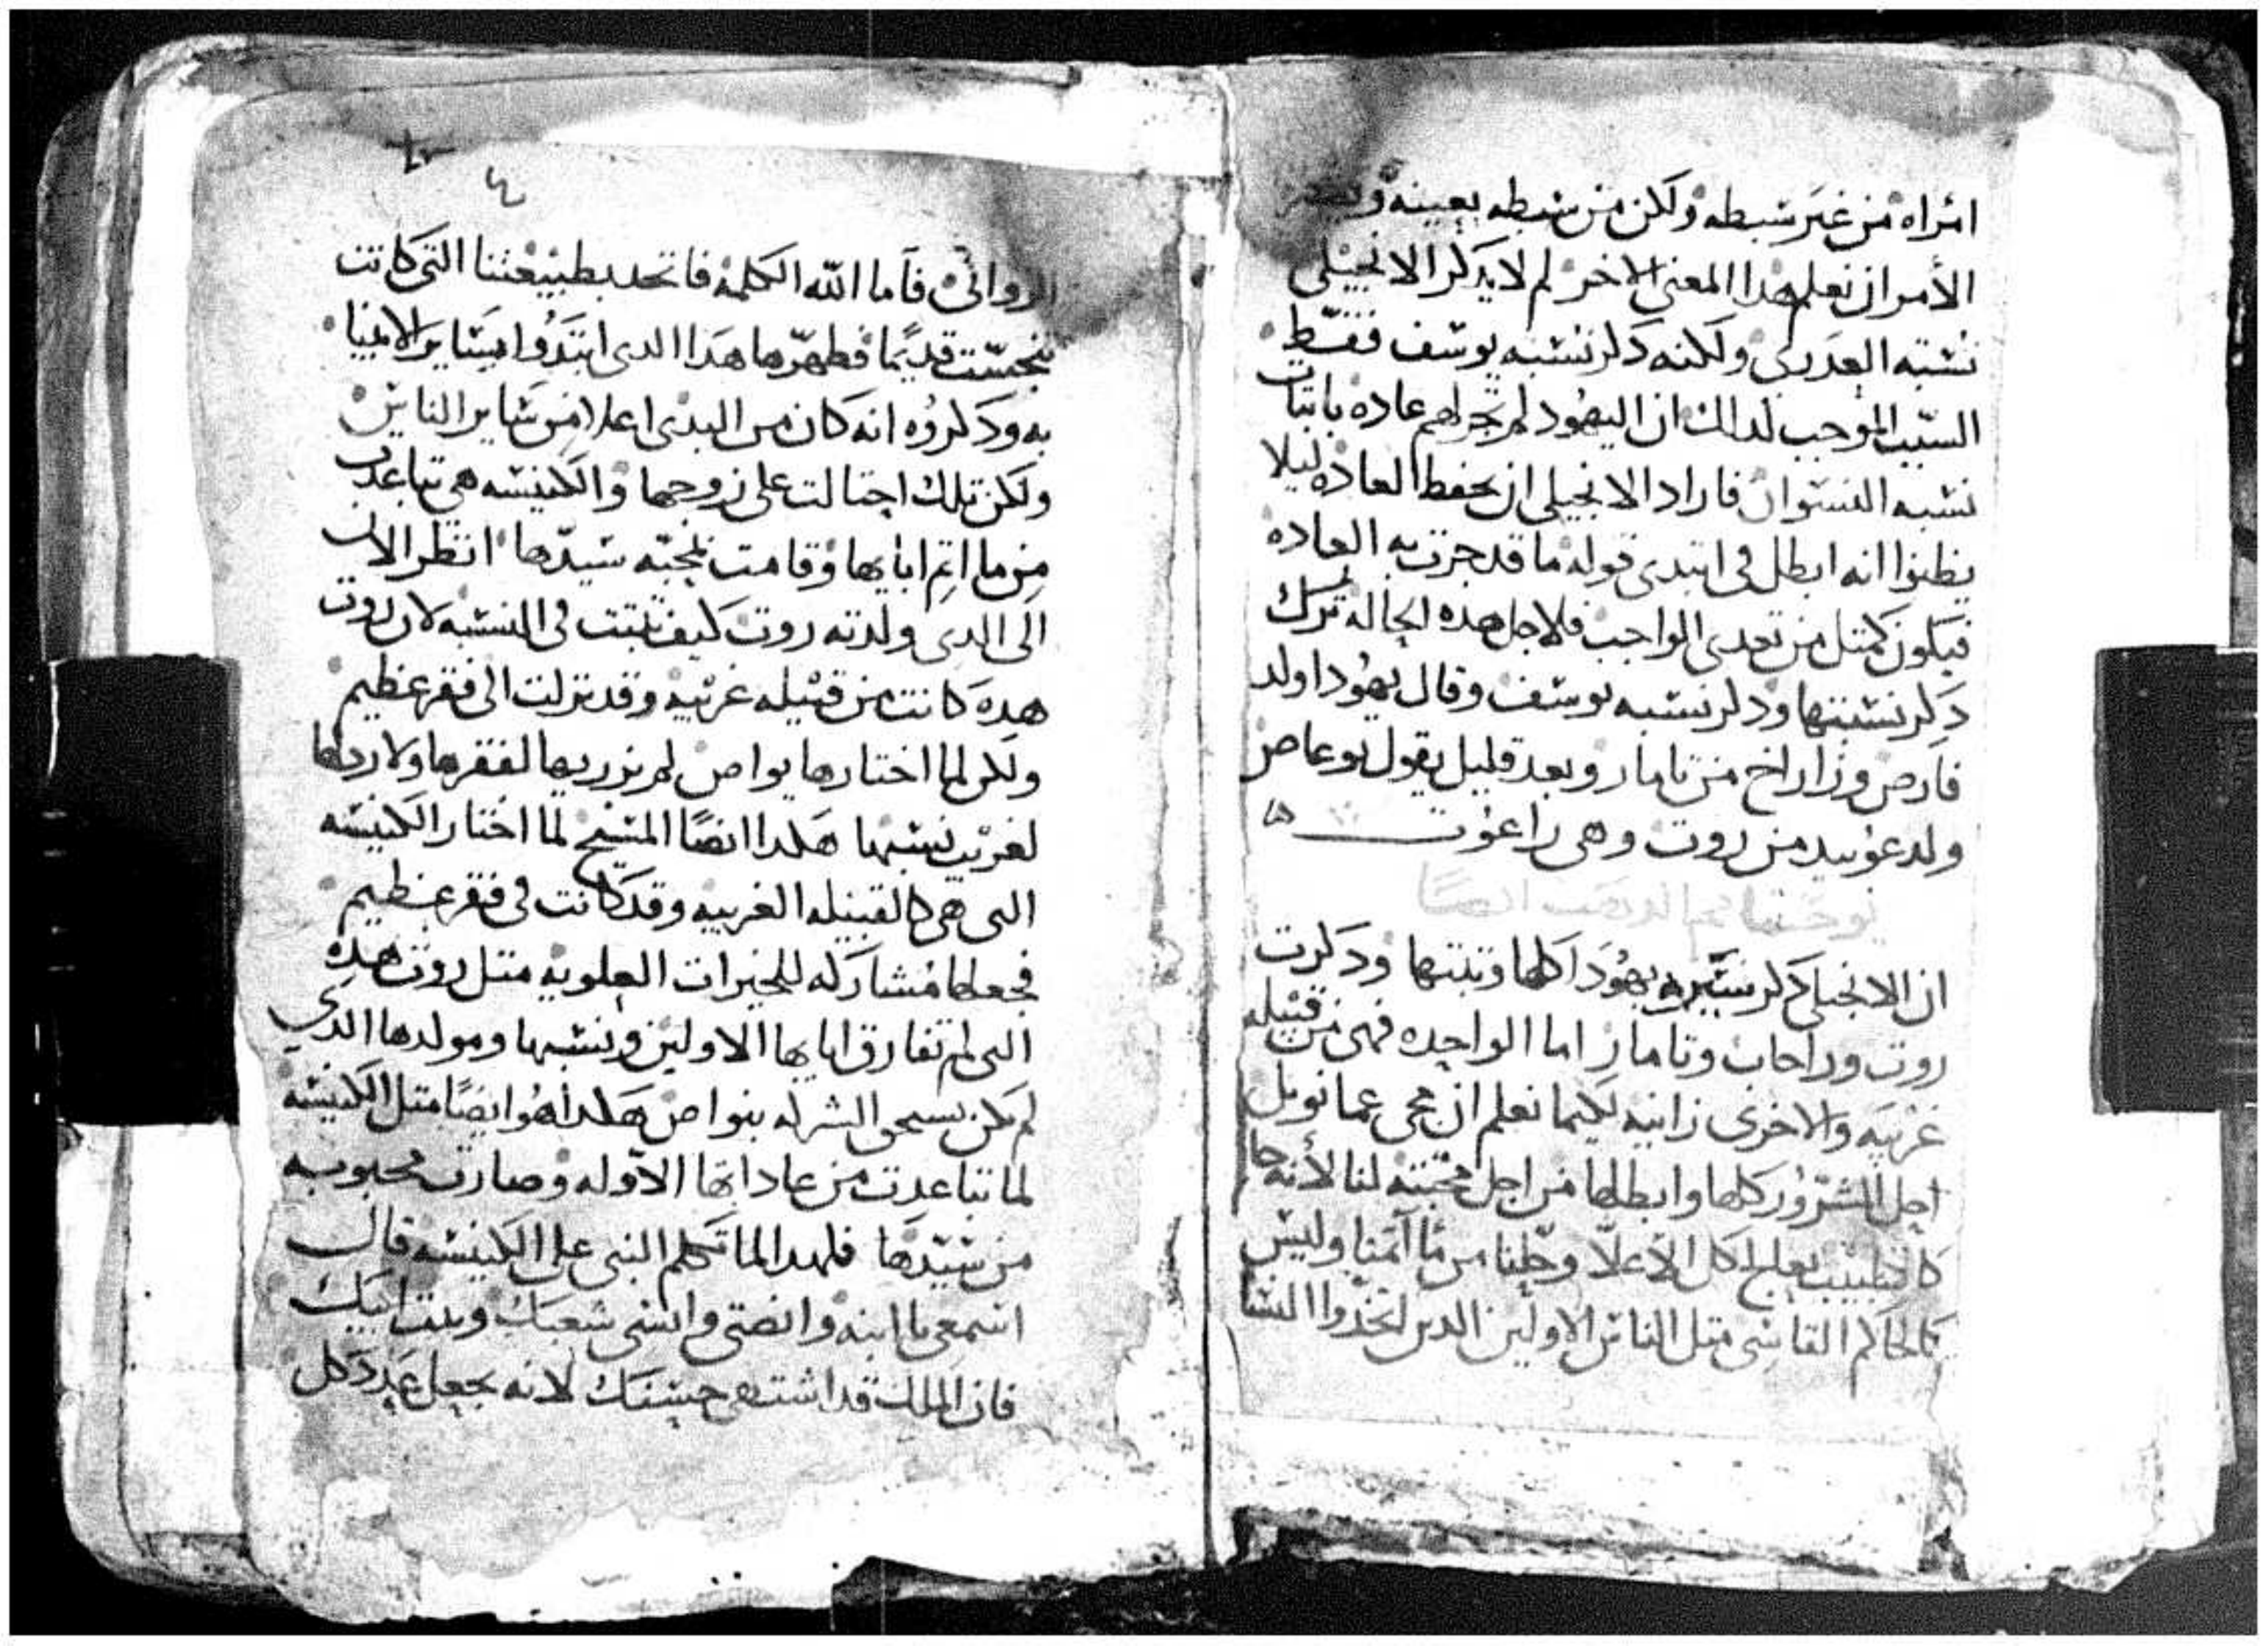 امراه من غير شبطه ولكن من شبطه بعينه
الأمر ان نعلم هدا المعنى الاخر لم لا يدكر الانجيلي
نشبته العدرى ولكنه دكر نشبه يوشف فقط
السبب الموجب لدالك ان اليهود لم تجر لهم عاده باتبات
نشبه النشوان فاراد الانجيلي ان يحفظ العاده ليلا
يظنوا انه ابطل في ابتدى قوله ما قد جرت به العاده
فيكون كمتل من تعدى الواجب فلاجل هده الحاله ترك
دكر نشبتها ودكر نشبه يوشف وقال يهودا اولد
فارص وزاراخ من تامار وبعد قليل يقول بوعاص
ولد عوبيد من روت وهي راعوت
ان الانجيلي دكر يهودا كلها وتبتها ودكرت
روت وراحاب وتامار اما الواحده فهي من قبيله
غريبه والاخرى زانيه لكيما نعلم ان مجى عمانويل
اجل الشرور كلها وابطلها من اجل محبته لنا لأنه جا
كالطبيب يعالج كل الاعلا وحلنا من مآاتمنا وليش
كالحاكم القاشي متل الناش الاولين الدين اتخدوا النشا
الزواني فاما الله الكلمه فاتحد بطبيعتنا التي كانت
تنجشت قديما فطهرها هدا الدي ابتدوا شاير الانبيا
به ودكروه انه كان من البدى اعلا من شاير الناش
ولكن تلك احتالت على زوجها والكنيشه هي تباعدت
من ماا تم ابايها وقامت بمحبه شيدها انظر الان
الى الدي ولدته روت كيف تبتت في النشبه لان روت
هده كانت من قبيله غريبه وقد نزلت الى فقر عظيم
ولكن لما اختارها بواص لم يزدريها لفقرها ولا ردلها
لغريب نشبها هكدا ايضًا المشيح لما اختار الكنيشه
التي هي كالقبيله الغريبه وقد كانت في فقر عظيم
فجعلها مشاركه للخيرات العلويه متل روت هده
التي لم تفارق ابايها الاولين ونشبها ومولدها الدي
لم تكن تستحق الشركه ببواص هكدا هو ايضًا متل الكنيشه
لما تباعدت من عاداتها الاوله وصارت محبوبه
من شيدها فلهدا لما تكلم النبي على الكنيشه قال
اشمعي يا ابنه وانصتي وانشي شعبك وبيت ابيك
فان الملك قد اشتهى حشنك لانه يجعل عدد كل